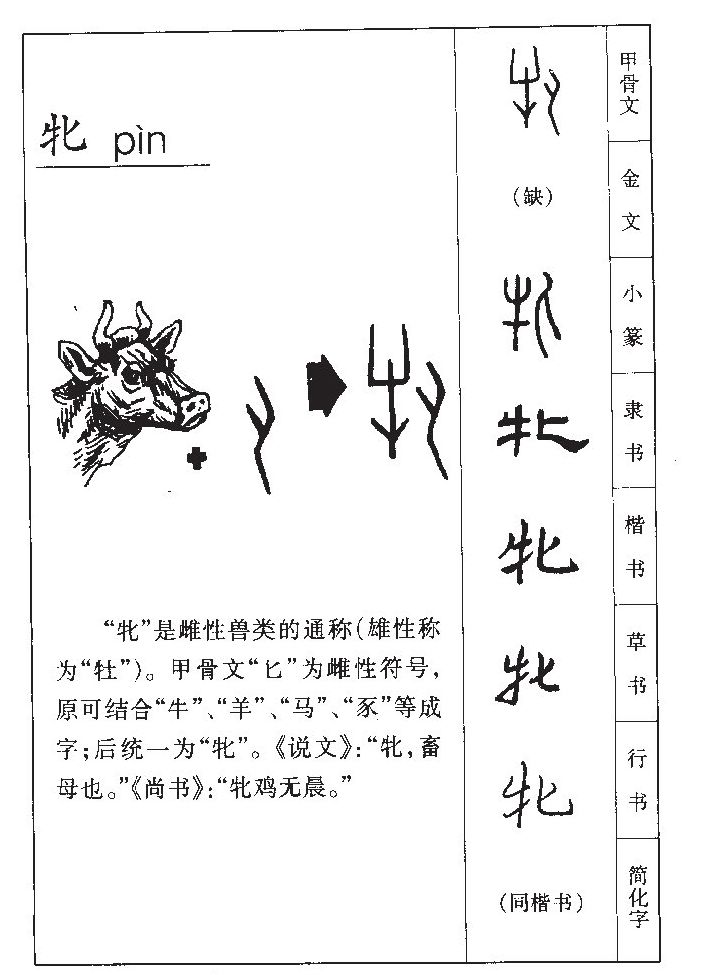 牝 pìn
“牝”是雌性兽类的通称(雄性称
为“牡”)。甲骨文“匕”为雌性符号,
原可结合“牛”、“羊”、“马”、“豕”等成
字;后统一为“牝”。《说文》:“牝,畜
母也。”《尚书》:“牝鸡无晨。”
牝
甲骨文
(缺)
金文
牝
小篆
牝
隶书
牝
楷书
牝
草书
牝
行书
(同楷书)
简化字